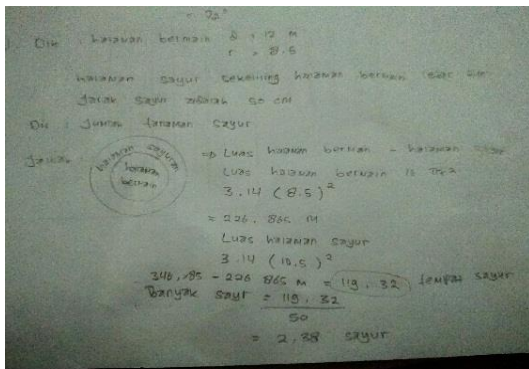 = 72°
Dik : halaman bermain d = 12 M
r = 8.5
halaman sayur sekeliling halaman bermain
Jarak sayur adalah 50 cm
Dit : Jumlah tanaman sayur
Jawab :
halaman sayuran
halaman bermain
=> Luas halaman bermain - halaman sayur
Luas halaman bermain
3.14 (8.5)²
= 226.865 M
Luas halaman sayur
3.14 (10.5)²
346,185 - 226 865 M = 119,32 tempat sayur
Banyak sayr = 119,32
50
= 2,38 sayur